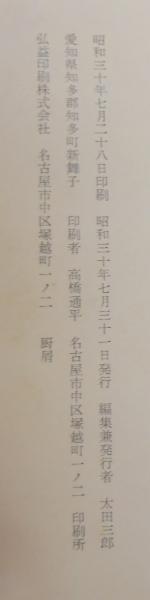 昭和三十年七月二十八日印刷　昭和三十年七月三十一日発行　編集兼発行者　太田三郎
愛知県知多郡知多町新舞子　印刷者　高橋通平　名古屋市中区塚越町一ノ二　印刷所
弘益印刷株式会社　名古屋市中区塚越町一ノ二　厨房